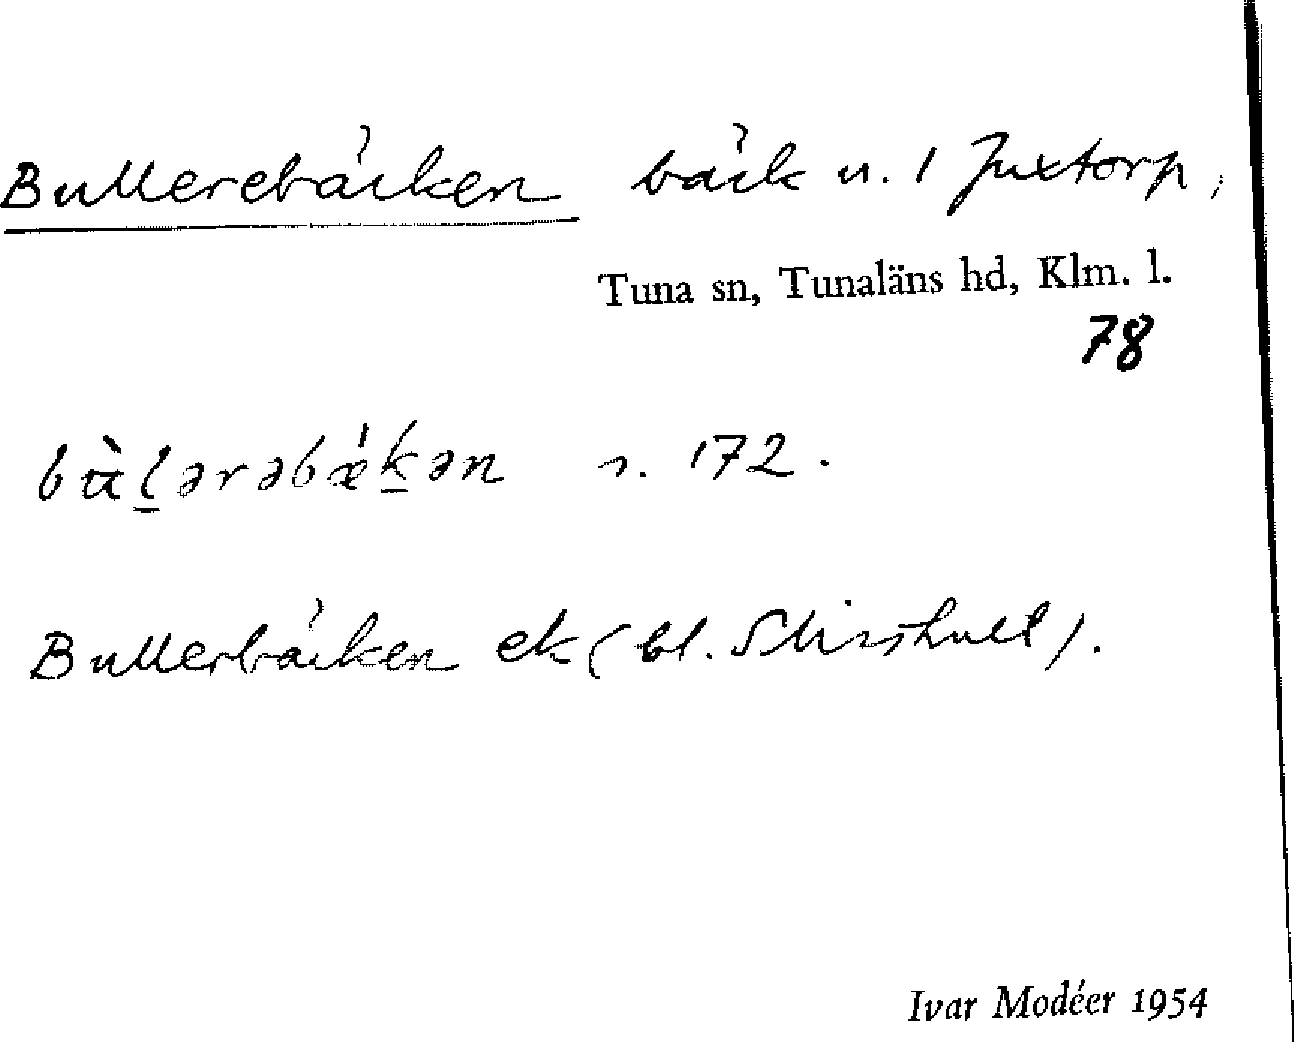 Bullerebäcken bäck u. 1 Juxtorp,
Tuna sn, Tunaläns hd, Klm. l.
78
bùlərəbǽkən s. 172.
Bullerbäcken ek (bl. Skirshult).
Ivar Modéer 1954